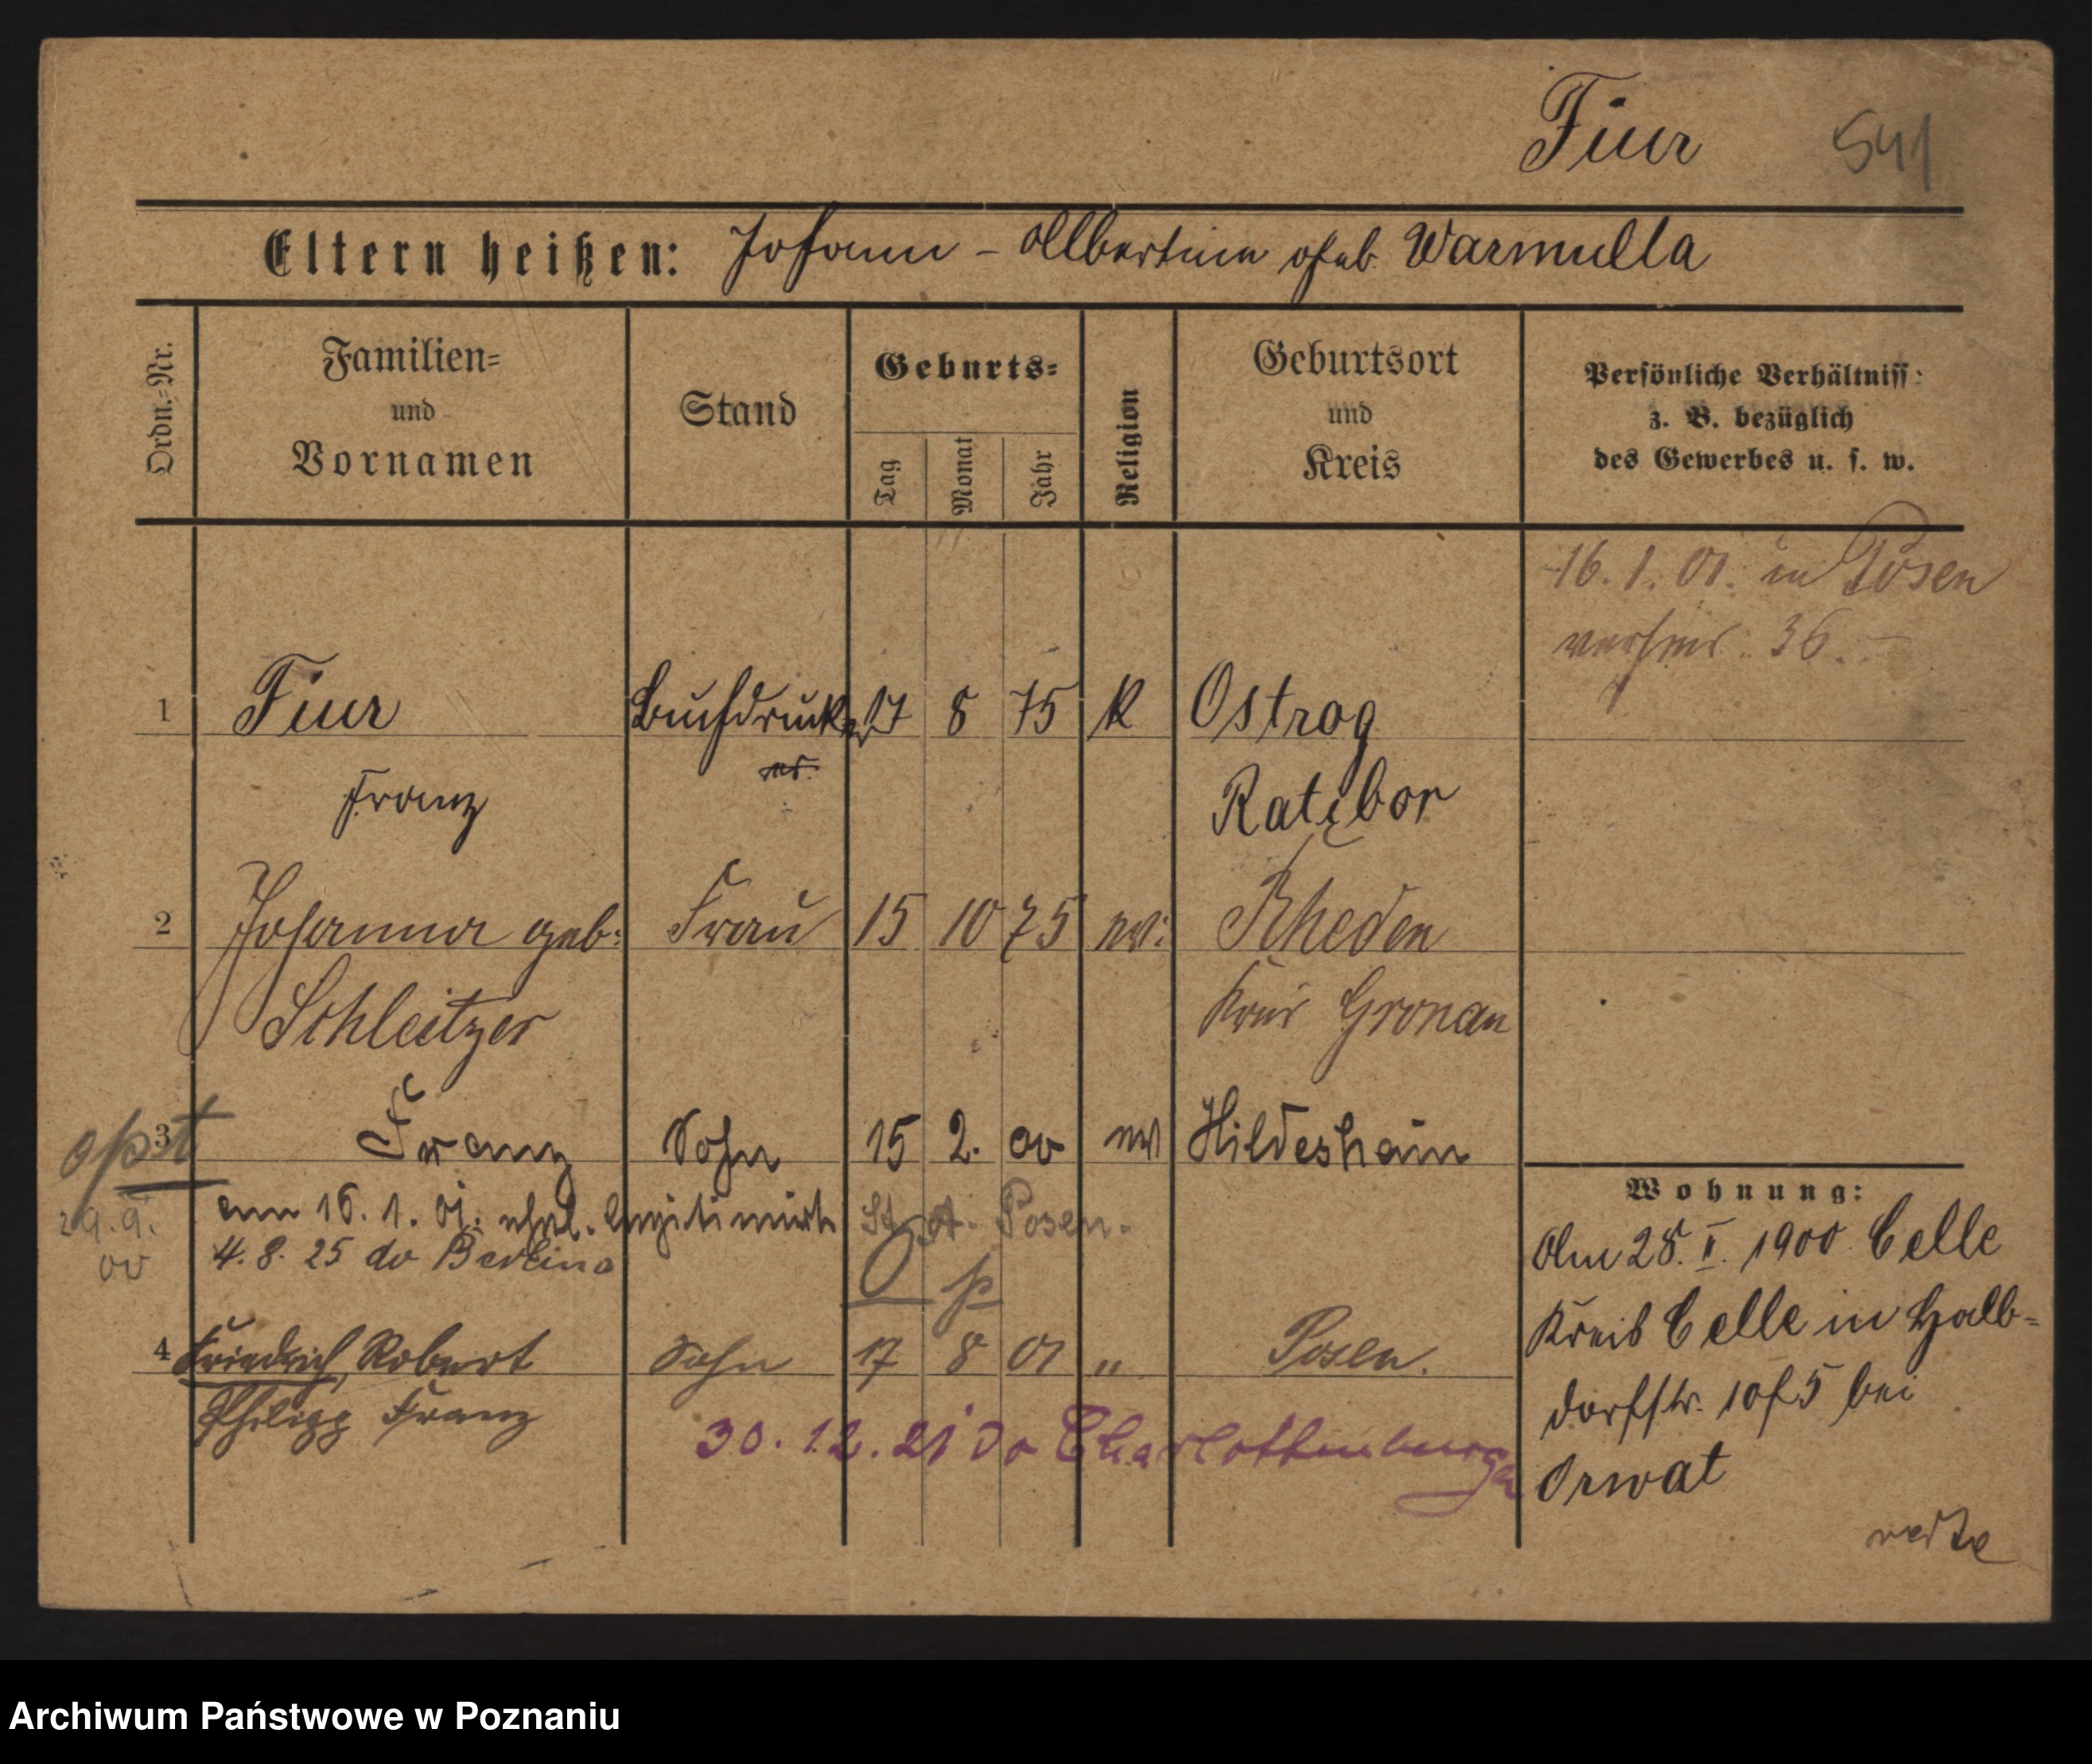 Fiur 541
Eltern heißen: Johann - Albertine geb. Warmulla
Ordn.-Nr.
Familien-
und
Vornamen
Stand
Geburts-
Tag
Monat
Jahr
Religion
Geburtsort
und
Kreis
Persönliche Verhältniss:
z. B. bezüglich
des Gewerbes u. s. w.
16. 1. 01. in Posen
verheir. 36.
1 Fiur Buchdrucker 17 8 75 K Ostrog
Franz Ratibor
2 Johanna geb: Frau 15 10 75 ev: Rheden
Schleitzer Kreis Gronau
3 Franz Sohn 15 2. 00 ev Hildesheim
opst
29. 9.
00
am 16. 1. 01. ehel. legitimirt St. A. Posen.
4. 8. 25 do Berlina
Op
4 Friedrich, Robert Sohn 17 8 01 " Posen.
Philipp Franz
30. 12. 21 do Charlottenburga
Wohnung:
Am 28. II. 1900 Celle
Kreis Celle in Halb-
dorfstr. 10 5 bei
Orwat
verte
Archiwum Państwowe w Poznaniu